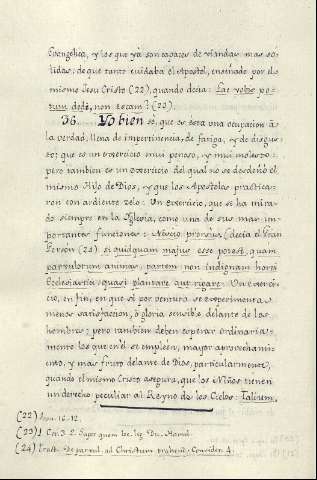 Evangelica, y los que yà son capaces de viandas mas so-
lidas; de que tanto cuidaba el Apostol, enseñado por el
mismo Jesu Cristo (22), quando decia: Lac vobis po-
tum dedi, non escam? (23).
36. Yo bien sé, que es esta una ocupacion à
la verdad, llena de impertinencia, de fatiga, y de disgus-
to; que es un exercicio mui penoso, y mui molesto:
pero tambien es un exercicio del qual no se desdeñó el
mismo Hijo de Dios, y que los Apostoles practica-
ron con ardiente zelo: Un exercicio, que se ha mira-
do siempre en la Iglesia, como una de sus mas im-
portantes funciones: Nescio prorsus (decia el Gran
Gerson (24) si quidquam majus esse potest, quam
parvulorum animas, partem non indignam horti
Ecclesiastici quasi plantare aut rigare: Un exerci-
cio, en fin, en que si por ventura se experimenta
menos satisfaccion, ò gloria sensible, delante de los
hombres; pero tambien deben esperar ordinaria-
mente los que en él se emplèen, mayor aprovechami-
ento, y mas fruto delante de Dios, particularmente,
quando el mismo Cristo asegura, que los Niños tienen
un derecho peculiar al Reyno de los Cielos: Talium,
(22) Joan. 16. 12.
(23) 1. Cor. 3. 2.
(24) Tract. De parvul. ad Christum trahend. Consider. 4.